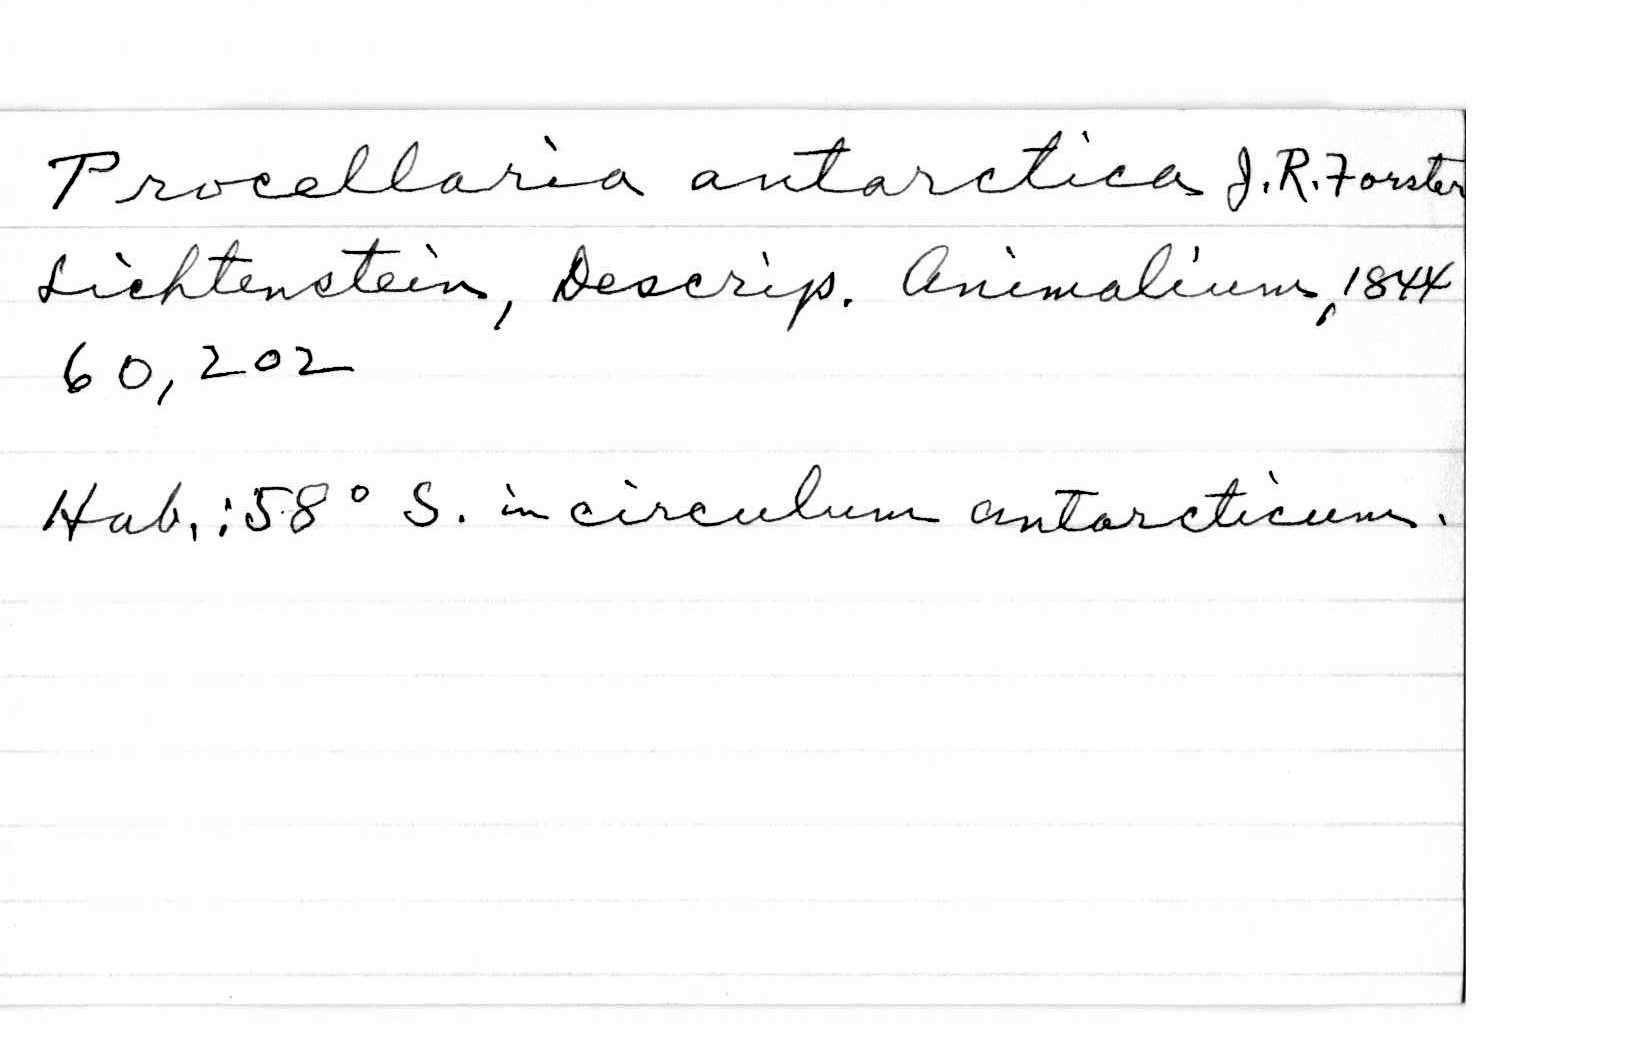 Procellaria antarctica J.R. Forster
Lichtenstein, Descrip. Animalium, 1844
60, 202
Hab.: 58° S. in circulum antarcticum.